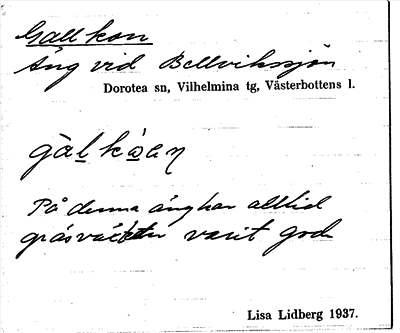 Gallkon
Äng vid Bellvikssjön
Dorotea sn, Vilhelmina tg, Västerbottens l.
På denna äng har alltid
gräsväxten varit god
Lisa Lidberg 1937.